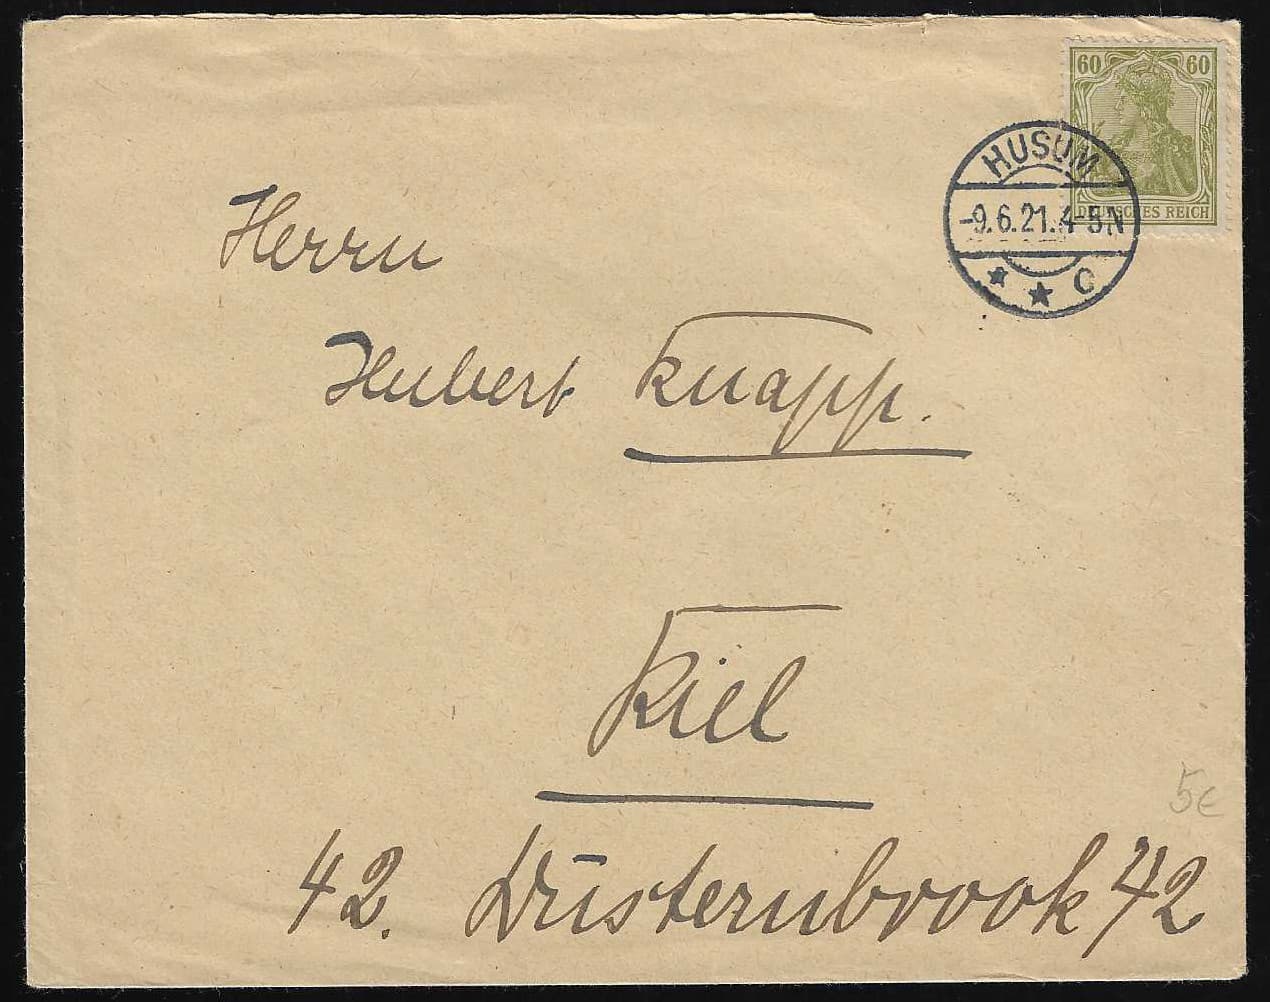 60 60
DEUTSCHES REICH
HUSUM
-9.6.21.4-5N
* * C
Herrn
Hubert Knapp.
Kiel
5€
42. Düsternbrook 42